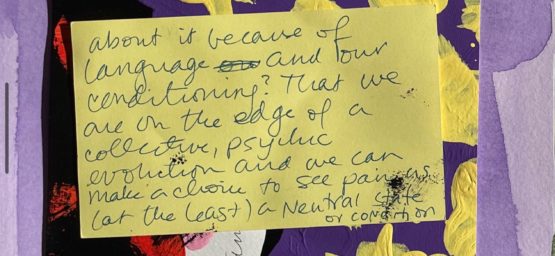 about it because of
language and our
conditioning? That we
are on the edge of a
collective, psychic
evolution and we can
make a choice to see pain as
(at the least) a Neutral state
or condition